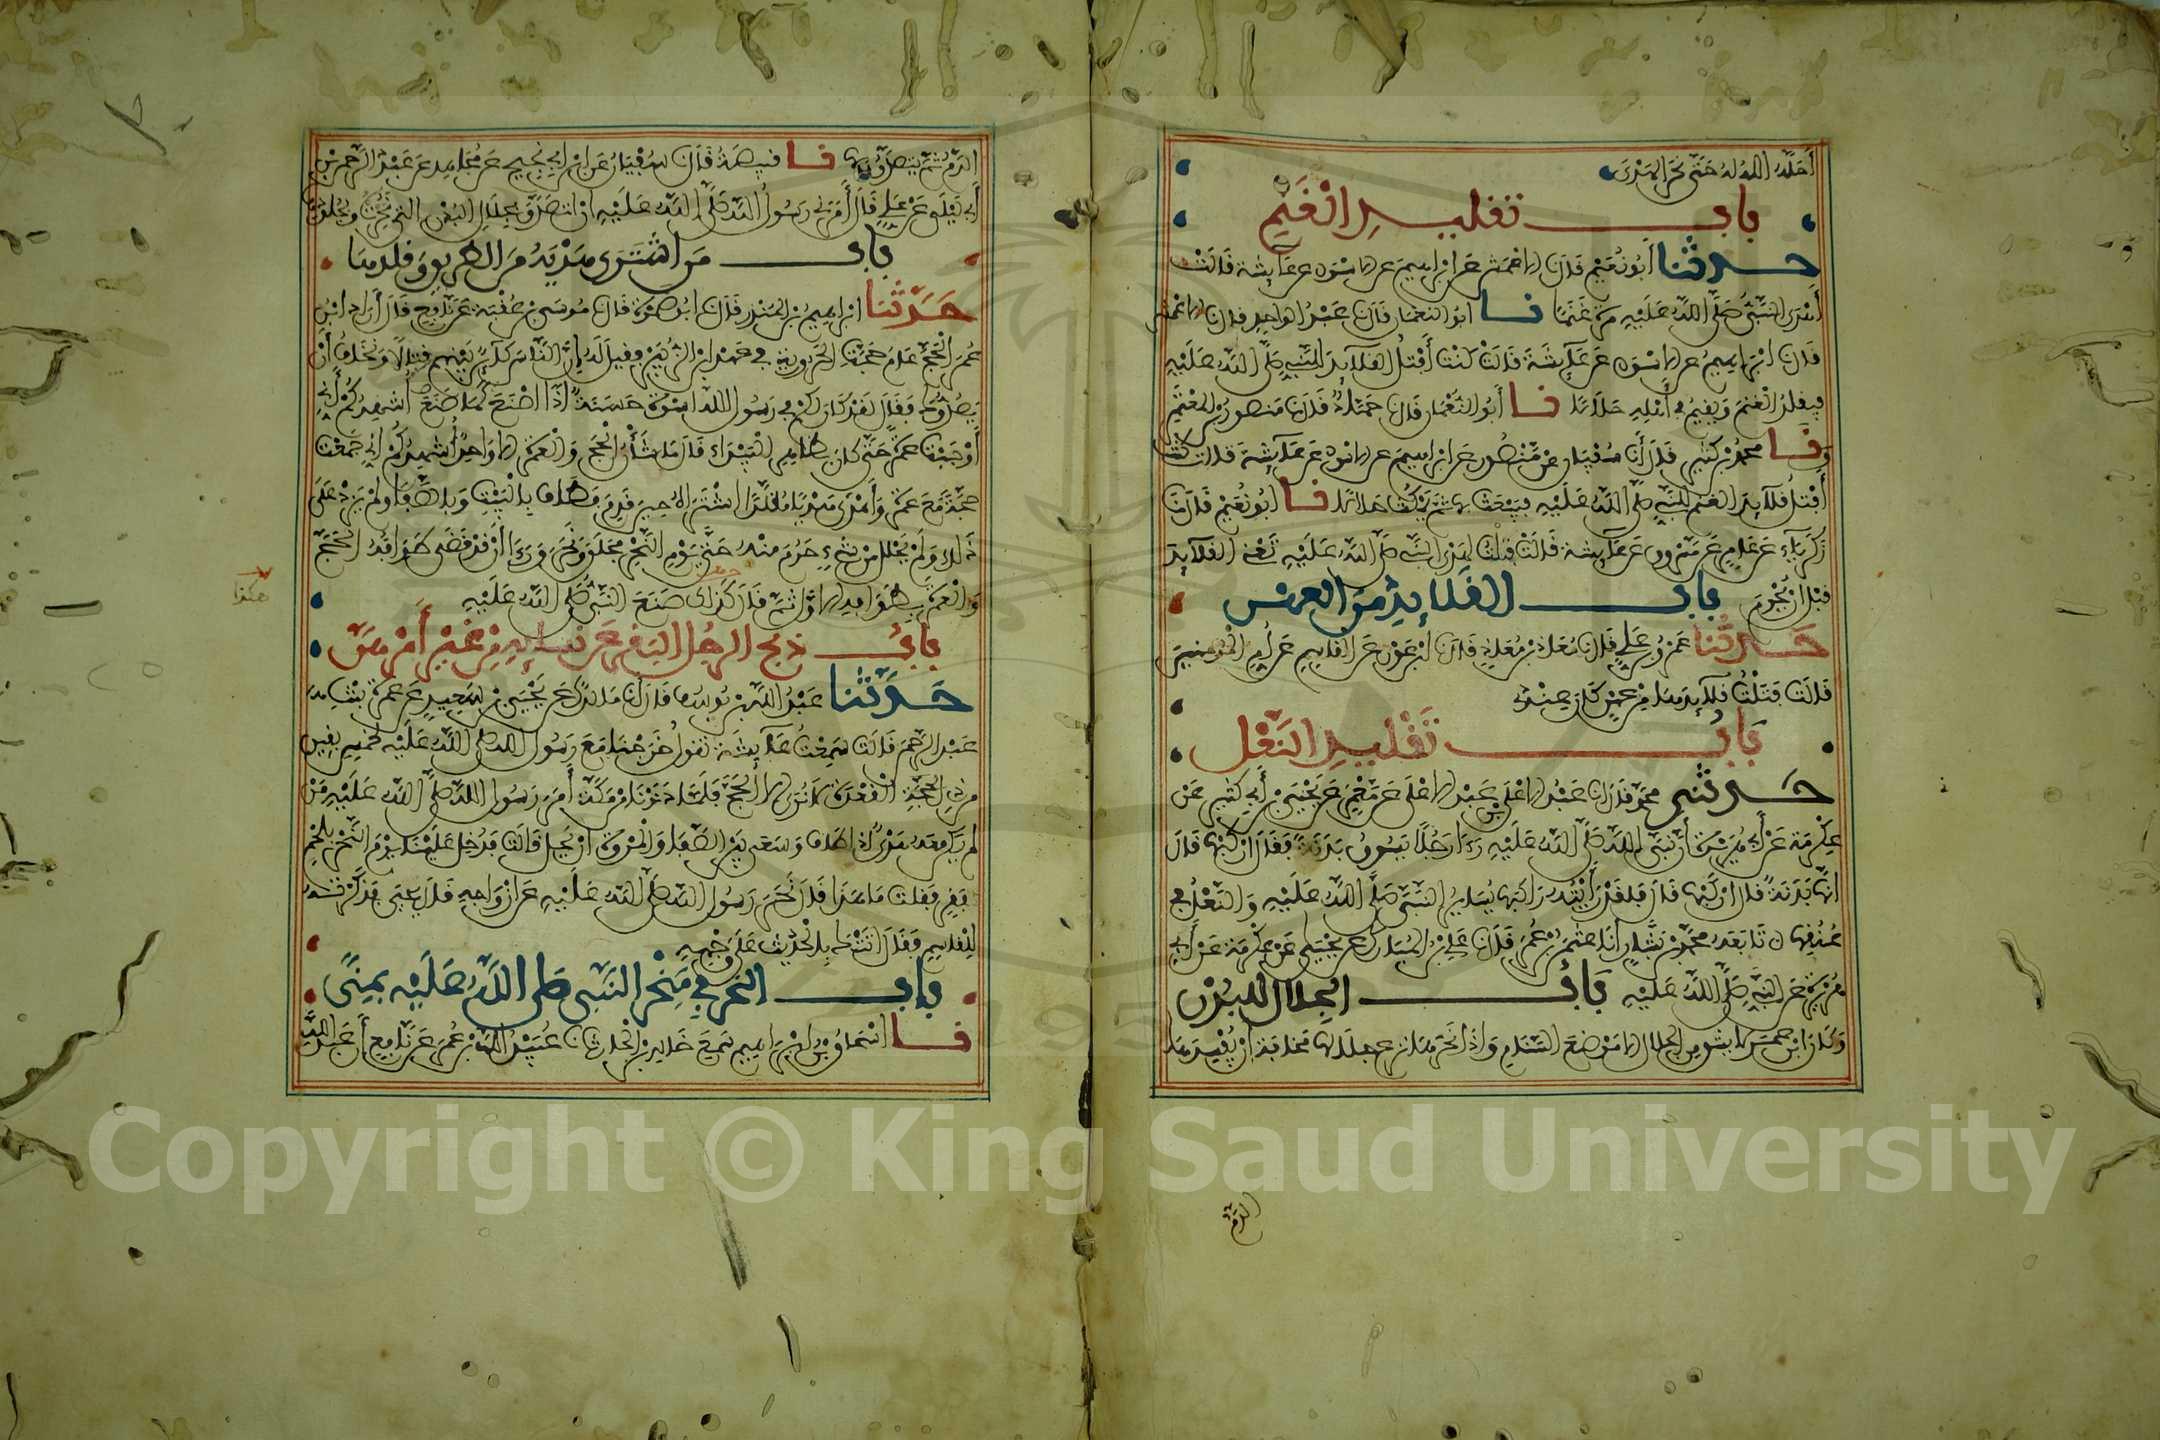 أحله الله له حتى نحر الهدى
باب تقليد الغنم
حدثنا أبو نعيم قال نا الاعمش عن ابراهيم عن الاسود عن عآئشة قالت
أهدى النبي صلى الله عليه مرة غنما نا ابو النعمان قال نا عبد الواحد قال نا الاعمش
قال نا ابراهيم عن الاسود عن عآئشة قالت كنت أفتل القلآئد للنبي صلى الله عليه
فيقلد الغنم ويقيم في أهله حلالا نا أبو النعمان قال نا حماد قال نا منصور بن المعتمر
ونا محمد بن كثير قال أنا سفيان عن منصور عن ابراهيم عن الاسود عن عآئشة قالت كنت
أفتل قلآئد الغنم للنبي صلى الله عليه فيبعث بها ثم يمكث حلالا نا أبو نعيم قال نا
زكريآء عن عامر عن مسروق عن عآئشة قالت فتلت لهدي النبي صلى الله عليه تعني القلآئد
قبل ان يحرم باب القلائد من العهن
حدثنا عمرو بن علي قال نا معاذ بن معاذ قال نا ابن عون عن القاسم عن أم المومنين
قالت فتلت قلآئدها من عهن كان عندي
باب تقليد النعل
حدثني محمد قال نا عبد الاعلى بن عبد الاعلى عن معمر عن يحيى بن أبي كثير عن
عكرمة عن أبي هريرة أن نبي الله صلى الله عليه رءا رجلا يسوق بدنة فقال اركبها قال
انها بدنة قال اركبها قال فلقد رأيته راكبها يساير النبي صلى الله عليه والنعل في
عنقها تابعه محمد بن بشار أنا عثمن بن عمر قال نا علي بن المبارك عن يحيى عن عكرمة عن أبي
هريرة عن النبي صلى الله عليه باب الجلال للبدن
وكان ابن عمر لا يشق من الجلال الا موضع السنام واذا نحرها نزع جلالها مخافة أن يفسدها
الدم
الدم ثم يتصدق بها نا قبيصة قال نا سفيان عن ابن أبي نجيح عن مجاهد عن عبد الرحمن بن
أبي ليلى عن علي قال أمرني رسول الله صلى الله عليه ان اتصدق بجلال البدن التي نحرت وبجلودها
باب من اشترى هديه من الطريق وقلدها
حدثنا ابراهيم بن المنذر قال نا ابو ضمرة قال نا موسى بن عقبة عن نافع قال أراد ابن
عمر الحج عام حجة الحرورية في عهد ابن الزبير فقيل له إن الناس كآئن بينهم قتال ونخاف أن
يصدوك فقال لقد كان لكم في رسول الله اسوة حسنة اذا اصنع كما صنع أشهدكم أني
أوجبت عمرة حتى كان بظاهر البيدآء قال ما شأن الحج والعمرة الا واحد أشهدكم أني جمعت
حجة مع عمرة وأهدى هديا مقلدا اشتراه حين قدم فطاف بالبيت وبالصفا ولم يزد على
ذلك ولم يحلل من شيء حرم منه حتى يوم النحر فحلق ونحر ورءا أن قد قضى طوافه الحج
والعمرة بطوافه الاول ثم قال كذلك صنع النبي صلى الله عليه
هكذا
باب ذبح الرجل البقر عن نسائه من غير أمرهن
حدثنا عبد الله بن يوسف قال أنا مالك عن يحيى بن سعيد عن عمرة بنت
عبد الرحمن قالت سمعت عآئشة تقول خرجنا مع رسول الله صلى الله عليه لخمس بقين
من ذي القعدة لا نرى الا الحج فلما دنونا من مكة أمر رسول الله صلى الله عليه من
لم يكن معه هدي اذا طاف وسعى بين الصفا والمروة أن يحل قالت فدخل علينا يوم النحر بلحم
بقر فقلت ما هذا قال نحر رسول الله صلى الله عليه عن ازواجه قال يحيى فذكرته
للقاسم فقال اتتك بالحديث على وجهه
باب النحر في منحر النبي صلى الله عليه بمنى
نا اسحاق بن ابراهيم سمع خالد بن الحارث نا عبيد الله بن عمر عن نافع أن عبد الله
Copyright © King Saud University